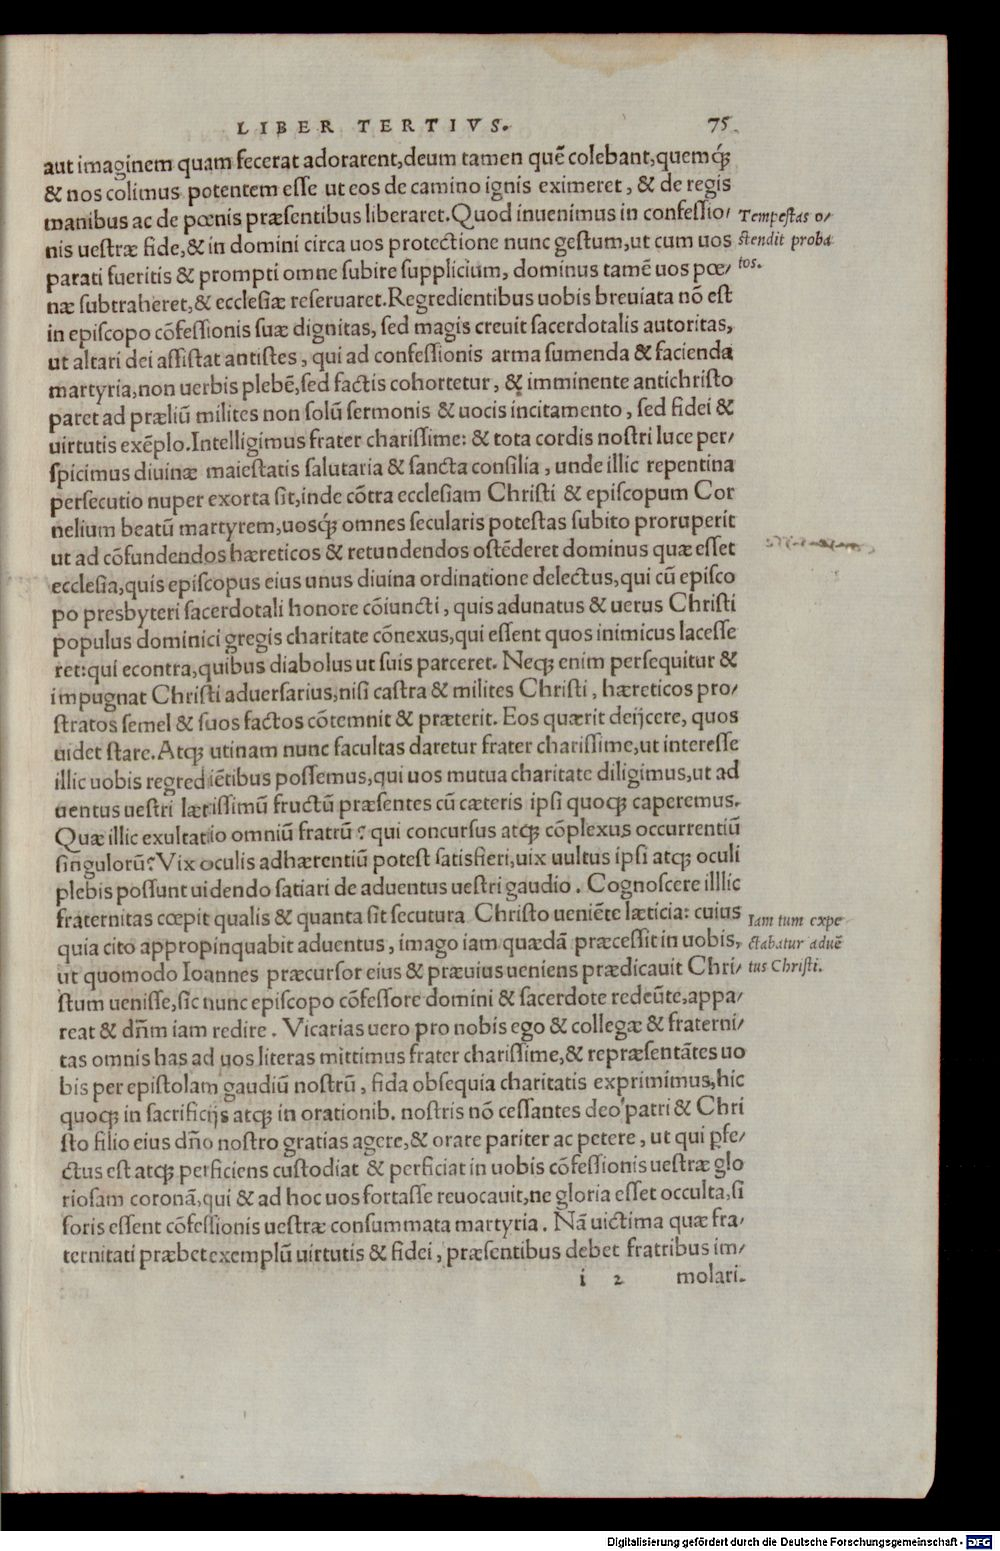 LIBER TERTIVS. 75
aut imaginem quam fecerat adorarent,deum tamen quẽ colebant,quemq́;
& nos colimus potentem esse ut eos de camino ignis eximeret, & de regis
manibus ac de pœnis præsentibus liberaret.Quod inuenimus in confessio/
Tempestas o/
nis uestræ fide,& in domini circa uos protectione nunc gestum,ut cum uos
stendit proba
parati fueritis & prompti omne subire supplicium, dominus tamẽ uos pœ/
tos.
næ subtraheret,& ecclesiæ reseruaret.Regredientibus uobis breuiata nõ est
in episcopo cõfessionis suæ dignitas, sed magis creuit sacerdotalis autoritas,
ut altari dei assistat antistes, qui ad confessionis arma sumenda & facienda
martyria,non uerbis plebẽ,sed factis cohortetur, & imminente antichristo
paret ad præliũ milites non solũ sermonis & uocis incitamento, sed fidei &
uirtutis exẽplo.Intelligimus frater charissime: & tota cordis nostri luce per/
spicimus diuinæ maiestatis salutaria & sancta consilia, unde illic repentina
persecutio nuper exorta sit,inde cõtra ecclesiam Christi & episcopum Cor
nelium beatũ martyrem,uosq́; omnes secularis potestas subito proruperit
ut ad cõfundendos hæreticos & retundendos ostẽderet dominus quæ esset
ecclesia,quis episcopus eius unus diuina ordinatione delectus,qui cũ episco
po presbyteri sacerdotali honore cõiuncti, quis adunatus & uerus Christi
populus dominici gregis charitate cõnexus,qui essent quos inimicus lacesse
ret:qui econtra,quibus diabolus ut suis parceret. Neq; enim persequitur &
impugnat Christi aduersarius,nisi castra & milites Christi, hæreticos pro/
stratos semel & suos factos cõtemnit & præterit. Eos quærit deijcere, quos
uidet stare.Atq; utinam nunc facultas daretur frater charissime,ut interesse
illic uobis regrediẽtibus possemus,qui uos mutua charitate diligimus,ut ad
uentus uestri lætissimũ fructũ præsentes cũ cæteris ipsi quoq; caperemus.
Quæ illic exultatio omniũ fratrũ? qui concursus atq; cõplexus occurrentiũ
singulorũ?Vix oculis adhærentiũ potest satisfieri,uix uultus ipsi atq; oculi
plebis possunt uidendo satiari de aduentus uestri gaudio. Cognoscere illlic
fraternitas cœpit qualis & quanta sit secutura Christo ueniẽte læticia: cuius
Iam tum expe
quia cito appropinquabit aduentus, imago iam quædã præcessit in uobis,
ctabatur aduẽ
ut quomodo Ioannes præcursor eius & præuius ueniens prædicauit Chri/
tus Christi.
stum uenisse,sic nunc episcopo cõfessore domini & sacerdote redeũte,appa/
reat & dñm iam redire. Vicarias uero pro nobis ego & collegæ & fraterni/
tas omnis has ad uos literas mittimus frater charissime,& repræsentãtes uo
bis per epistolam gaudiũ nostrũ, fida obsequia charitatis exprimimus,hic
quoq; in sacrificijs atq; in orationib. nostris nõ cessantes deo patri & Chri
sto filio eius dño nostro gratias agere,& orare pariter ac petere, ut qui ꝑfe/
ctus est atq; perficiens custodiat & perficiat in uobis cõfessionis uestræ glo
riosam coronã,qui & ad hoc uos fortasse reuocauit,ne gloria esset occulta,si
foris essent cõfessionis uestræ consummata martyria. Nã uictima quæ fra/
ternitati præbet exemplũ uirtutis & fidei, præsentibus debet fratribus im/
i 2 molari.
Digitalisierung gefördert durch die Deutsche Forschungsgemeinschaft - DFG